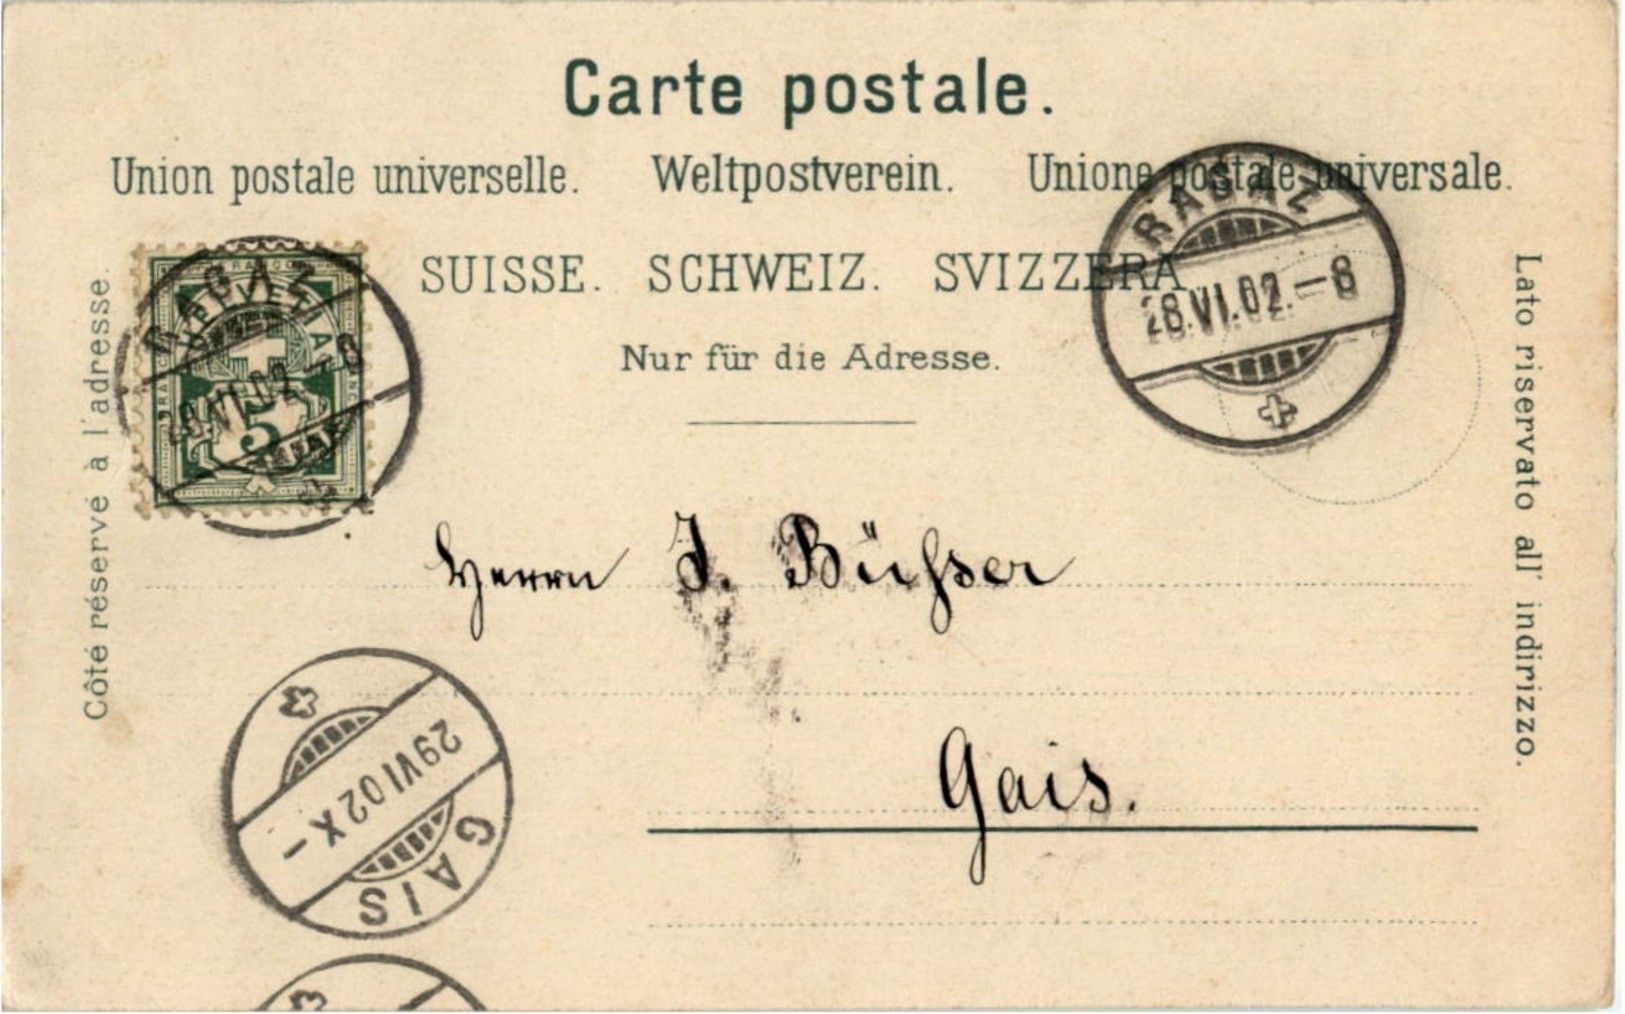 Carte postale.
Union postale universelle. Weltpostverein. Unione postale universale.
SUISSE. SCHWEIZ. SVIZZERA.
Nur für die Adresse.
Côté réservé à l'adresse.
Lato riservato all' indirizzo.
RAGAZ
HELVETIA
FRANCO
5
28.VI.02.-8
RAGAZ
28.VI.02.-8
Herrn J. Büchser
Gais.
29VI02X-
GAIS